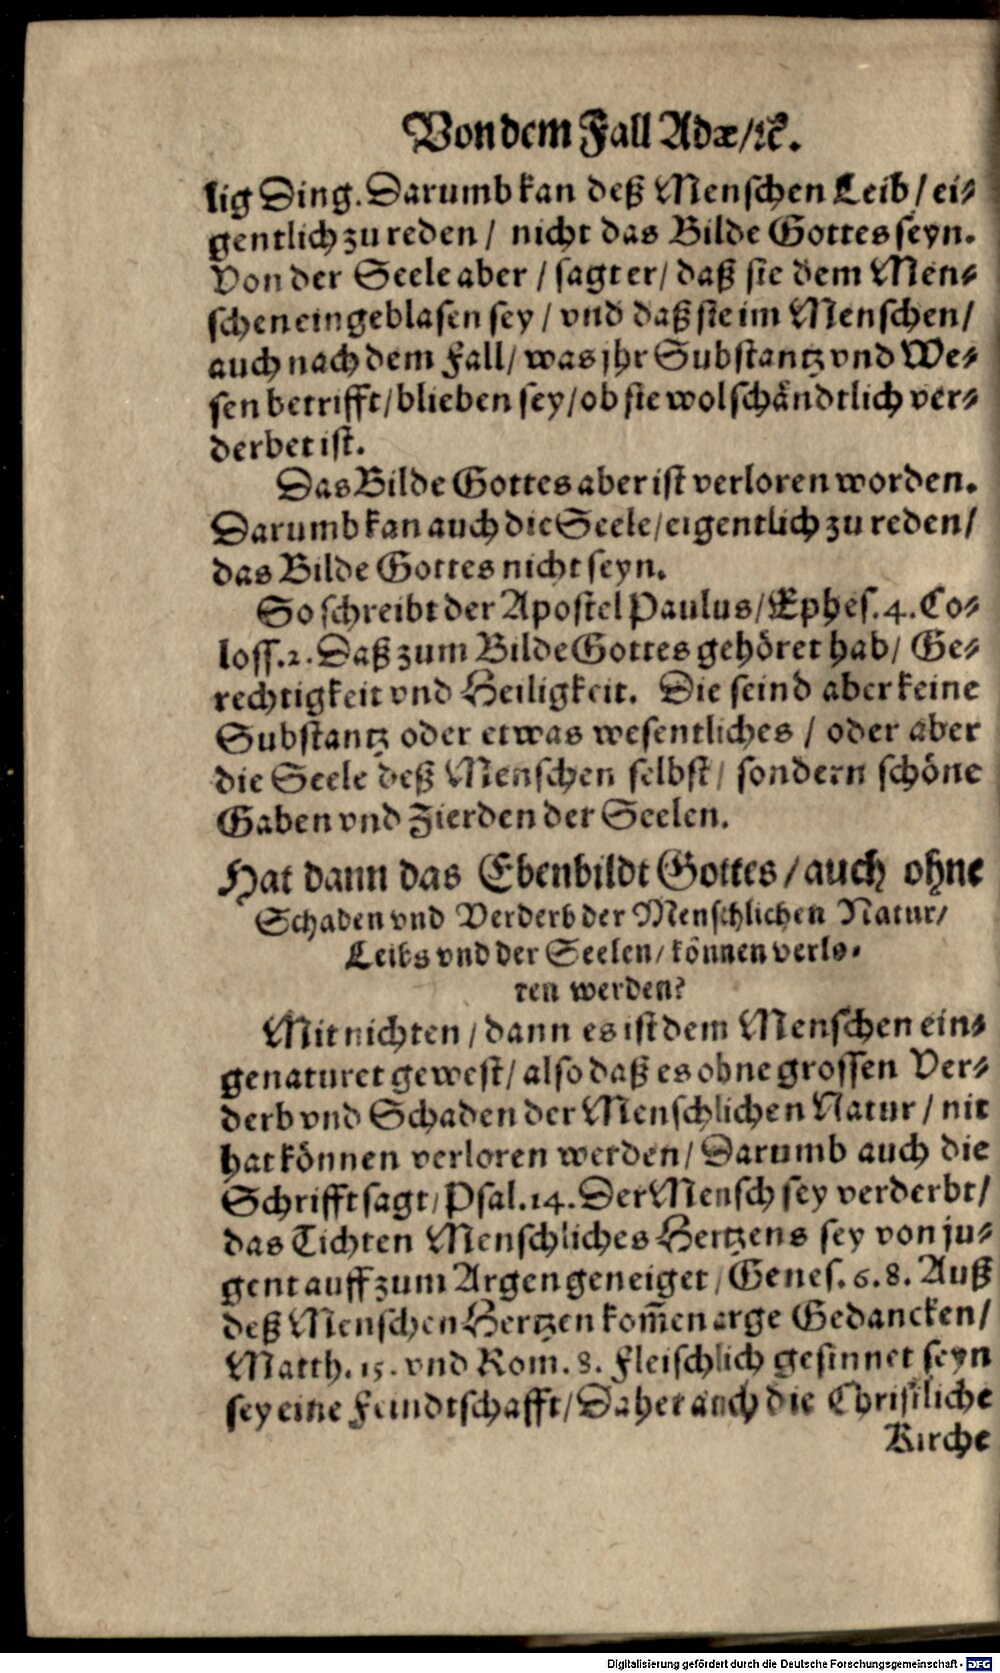 Von dem Fall Adæ/ꝛc.
lig Ding. Darumb kan deß Menschen Leib / ei⸗
gentlich zu reden / nicht das Bilde Gottes seyn.
Von der Seele aber / sagt er / daß sie dem Men⸗
schen eingeblasen sey / vnd daß sie im Menschen /
auch nach dem Fall / was jhr Substantz vnd We⸗
sen betrifft / blieben sey / ob sie wol schändtlich ver⸗
derbet ist.
Das Bilde Gottes aber ist verloren worden.
Darumb kan auch die Seele / eigentlich zu reden /
das Bilde Gottes nicht seyn.
So schreibt der Apostel Paulus / Ephes. 4. Co⸗
loss. 2. Daß zum Bilde Gottes gehöret hab / Ge⸗
rechtigkeit vnd Heiligkeit. Die seind aber keine
Substantz oder etwas wesentliches / oder aber
die Seele deß Menschen selbst / sondern schöne
Gaben vnd Zierden der Seelen.
Hat dann das Ebenbildt Gottes / auch ohne
Schaden vnd Verderb der Menschlichen Natur /
Leibs vnd der Seelen / können verlo⸗
ren werden?
Mit nichten / dann es ist dem Menschen ein⸗
genaturet gewest / also daß es ohne grossen Ver⸗
derb vnd Schaden der Menschlichen Natur / nit
hat können verloren werden / Darumb auch die
Schrifft sagt / Psal. 14. Der Mensch sey verderbt /
das Tichten Menschliches Hertzens sey von ju⸗
gent auff zum Argen geneiget / Genes. 6. 8. Auß
deß Menschen Hertzen kom̃en arge Gedancken /
Matth. 15. vnd Rom. 8. Fleischlich gesinnet seyn
sey eine Feindtschafft / Daher auch die Christliche
Kirche
Digitalisierung gefördert durch die Deutsche Forschungsgemeinschaft - DFG